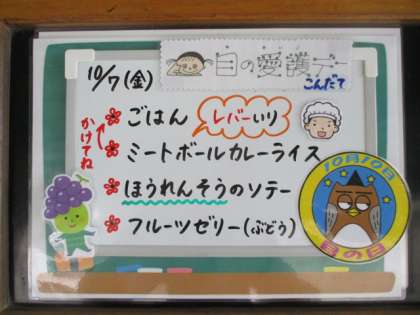 目の愛護デー
こんだて
10/7(金)
ごはん
レバーいり
かけてね
ミートボールカレーライス
ほうれんそうのソテー
フルーツゼリー(ぶどう)
10月10日
目の日